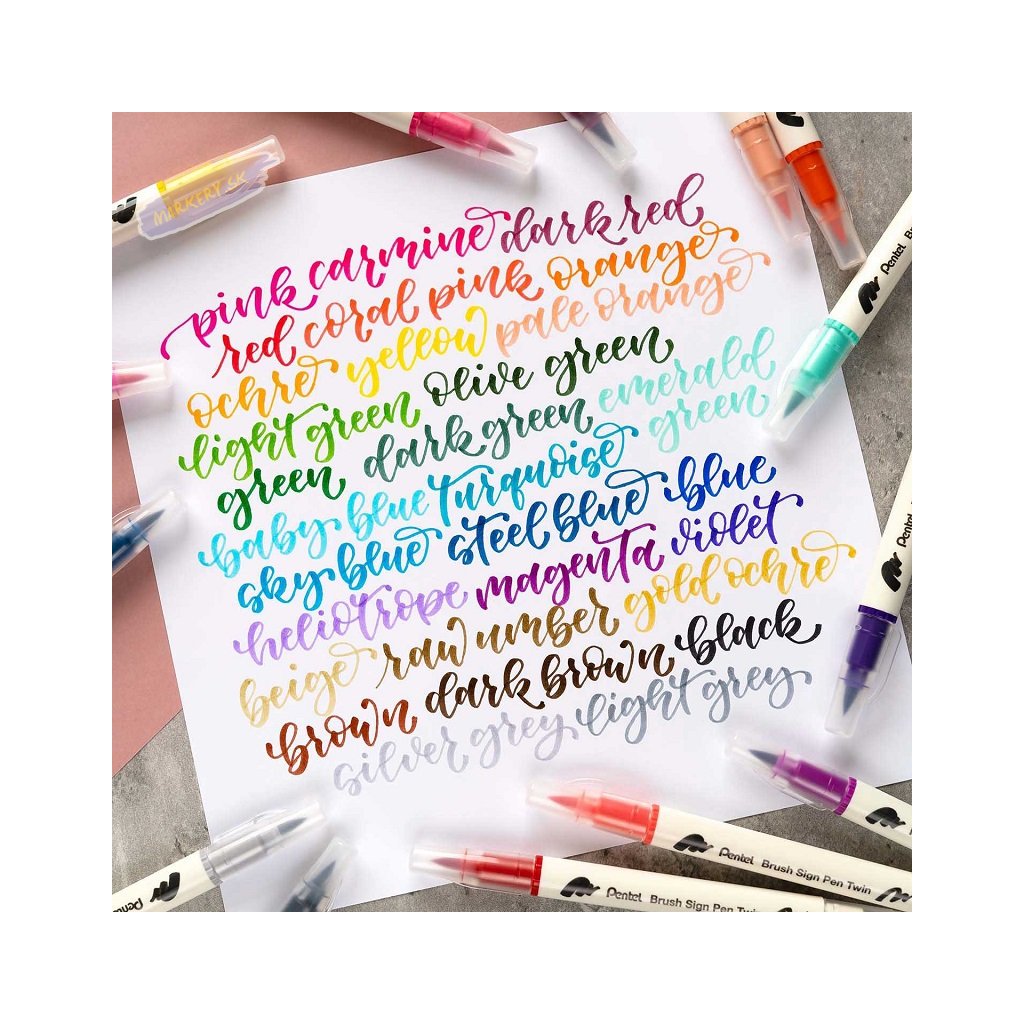 MARKERY.SK
pink carmine dark red
red coral pink orange
ochre yellow pale orange
light green olive green
green dark green emerald green
baby blue turquoise
sky blue steel blue blue
heliotrope magenta violet
beige raw umber gold ochre
brown dark brown black
silver grey light grey
Pentel Br
Pentel
Pentel
Pentel Brush Sign Pen Twin
Pentel Brush Sign Pen Twin
Pente